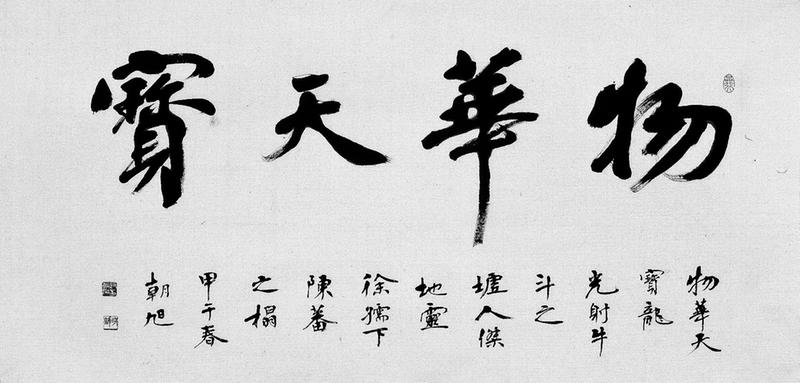 物華天寶
物華天
寶龍
光射牛
斗之
墟人傑
地靈
徐孺下
陳蕃
之榻
甲午春
朝旭